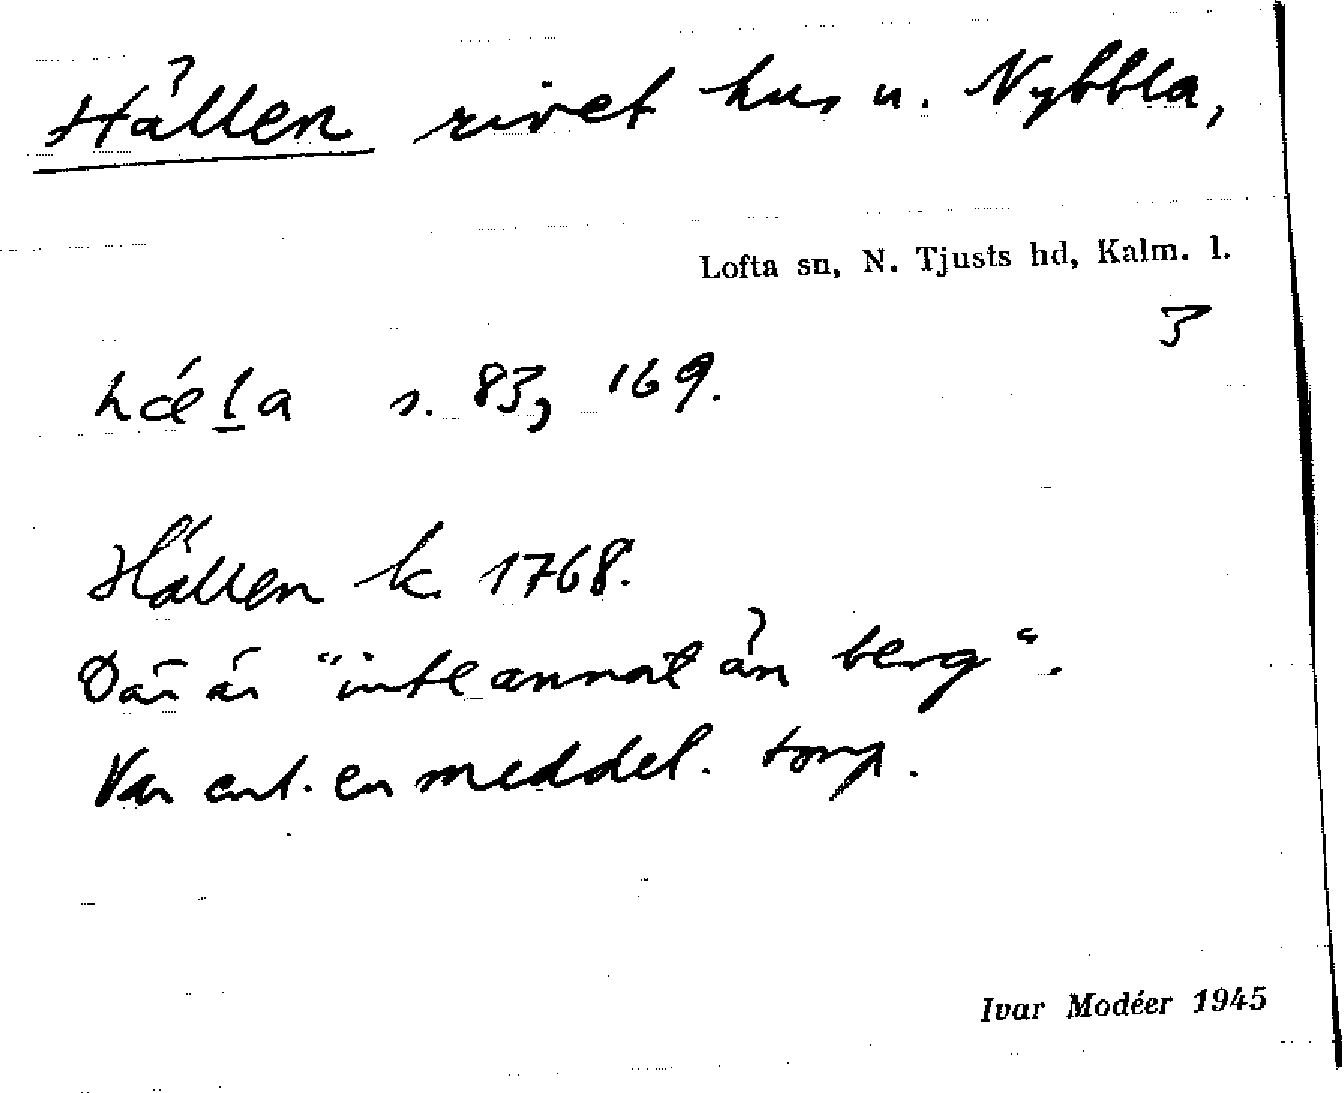 Hällen rivet hus u. Nybbla,
Lofta sn, N. Tjusts hd, Kalm. l.
3
hǽḷa s. 83, 169.
Hällen k. 1768.
Där är "inte annat än berg".
Var enl. en meddel. torp.
Ivar Modéer 1945